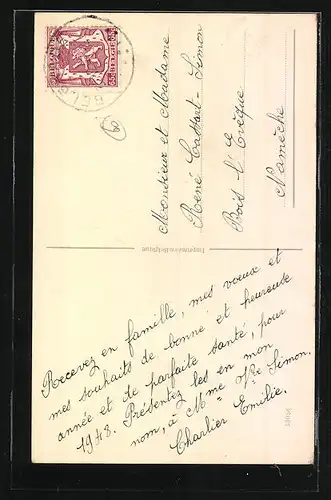 BELGIQUE BELGIE
Monsieur et Madame
René Cassart-Simon
Bois l'Evêque
Namêche
Imprimé en Belgique
Recevez en famille, mes voeux et
mes souhaits de bonne et heureuse
année et de parfaite santé, pour
1948. Présentez les en mon
nom, à Mme Vve Simon.
Charlier Emilie.